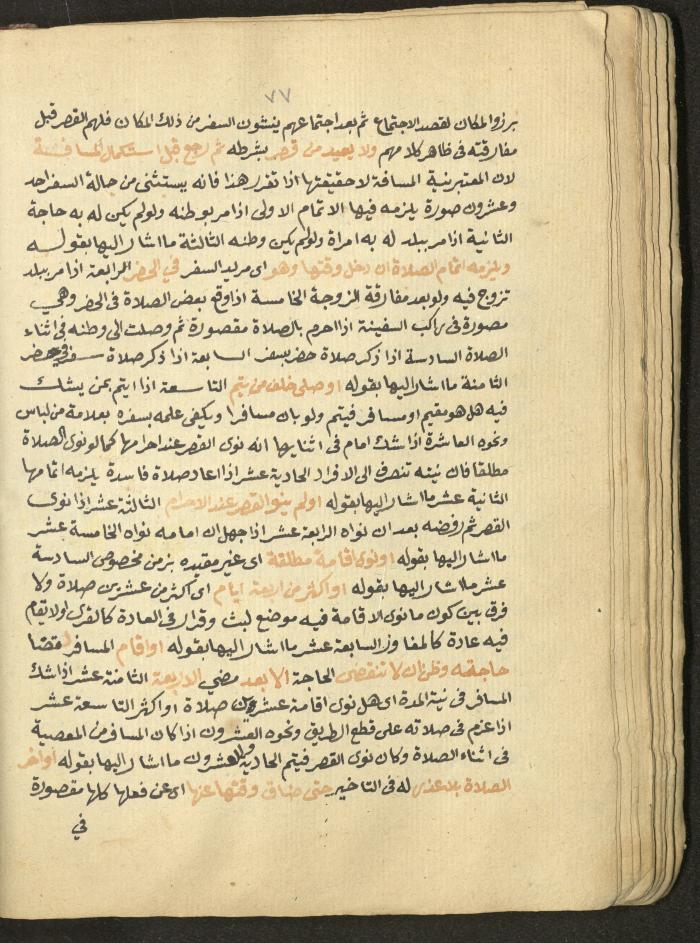 ٧٧
برزوا لمكان لقصد الاجتماع ثم بعد اجتماعهم ينشئون السفر من ذلك المكان فلهم القصر قبل
مفارقته في ظاهر كلامهم ولا يعيد من قصر بشرطه ثم رجع قبل استكمال المسافة
لان المعتبر نية المسافة لا حقيقتها اذا تقرر هذا فانه يستثنى من حالة السفر احد
وعشرون صورة يلزمه فيها الاتمام الاولى اذا مر بوطنه ولو لم يكن له به حاجة
الثانية اذا مر ببلد له به امراة ولو لم يكن وطنه الثالثة ما اشار اليها بقوله
ويلزمه اتمام الصلاة ان دخل وقتها وهو اى مريد السفر في الحضر الرابعة اذا مر ببلد
تزوج فيه ولو بعد مفارقة الزوجة الخامسة اذا وقع بعض الصلاة في الحضر وهي
مصورة في راكب السفينة اذا احرم بالصلاة مقصورة ثم وصلت الى وطنه في اثناء
الصلاة السادسة اذا ذكر صلاة حضر بسفر السابعة اذا ذكر صلاة سفر في حضر
الثامنة ما اشار اليها بقوله او صلى خلف من يتم التاسعة اذا ايتم بمن يشك
فيه هل هو مقيم او مسافر فيتم ولو بان مسافرا ويكفى علمه بسفره بعلامة من لباس
ونحوه العاشرة اذا شك امام في اثنايها انه نوى القصر عند احرامها كما لو نوى الصلاة
مطلقا فان نيته تنصرف الى الافراد الحادية عشر اذا اعاد صلاة فاسدة يلزمه اتمامها
الثانية عشر ما اشار اليها بقوله او لم ينو القصر عند الاحرام الثالثة عشر اذا نوى
القصر ثم رفضه بعد ان نواه الرابعة عشر اذا جهل ان امامه نواه الخامسة عشر
ما اشار اليها بقوله او نوى اقامة مطلقة اى غير مقيده بزمن مخصوص السادسة
عشر ما اشار اليها بقوله او اكثر من اربعة ايام اى اكثر من عشرين صلاة ولا
فرق بين كون ما نوى الاقامة فيه موضع لبث وقرار في العادة كالقرى او لا يقام
فيه عادة كالمفاوز السابعة عشر ما اشار اليها بقوله او اقام المسافر لقضا
حاجته وظن ان لا تنقضى الحاجة الا بعد مضي الاربعة الثامنة عشر اذا شك
المسافر في نية المدة اى هل نوى اقامة عشرين صلاة او اكثر التاسعة عشر
اذا عزم في صلاته على قطع الطريق ونحوه العشرون اذا كان المسافر من المعصية
في اثناء الصلاة وكان نوى القصر فيتم الحادية والعشرون ما اشار اليها بقوله او اخر
الصلاة بلا عذر له في التاخير حتى ضاق وقتها عنها اى عن فعلها كلها مقصورة
في